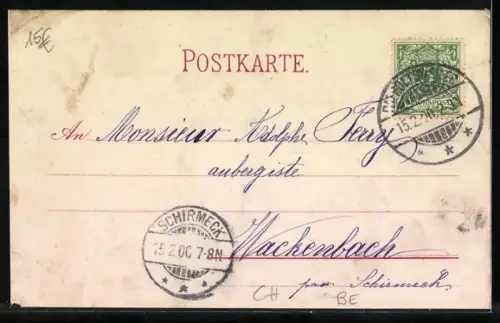 15€
POSTKARTE.
15.2.00.
An Monsieur Adolphe Ferry
aubergiste
SCHIRMECK
15.2.00 7-8N
Wackenbach
par Schirmeck
CH BE